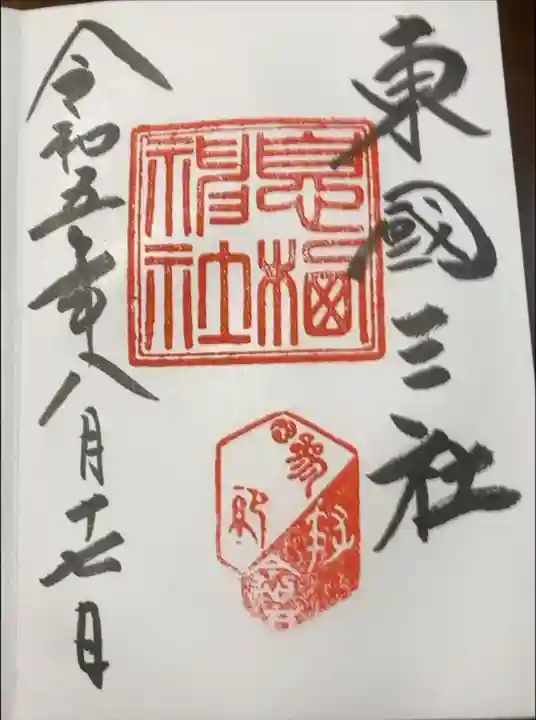 東國三社
息栖
神社
令和五年八月十七日